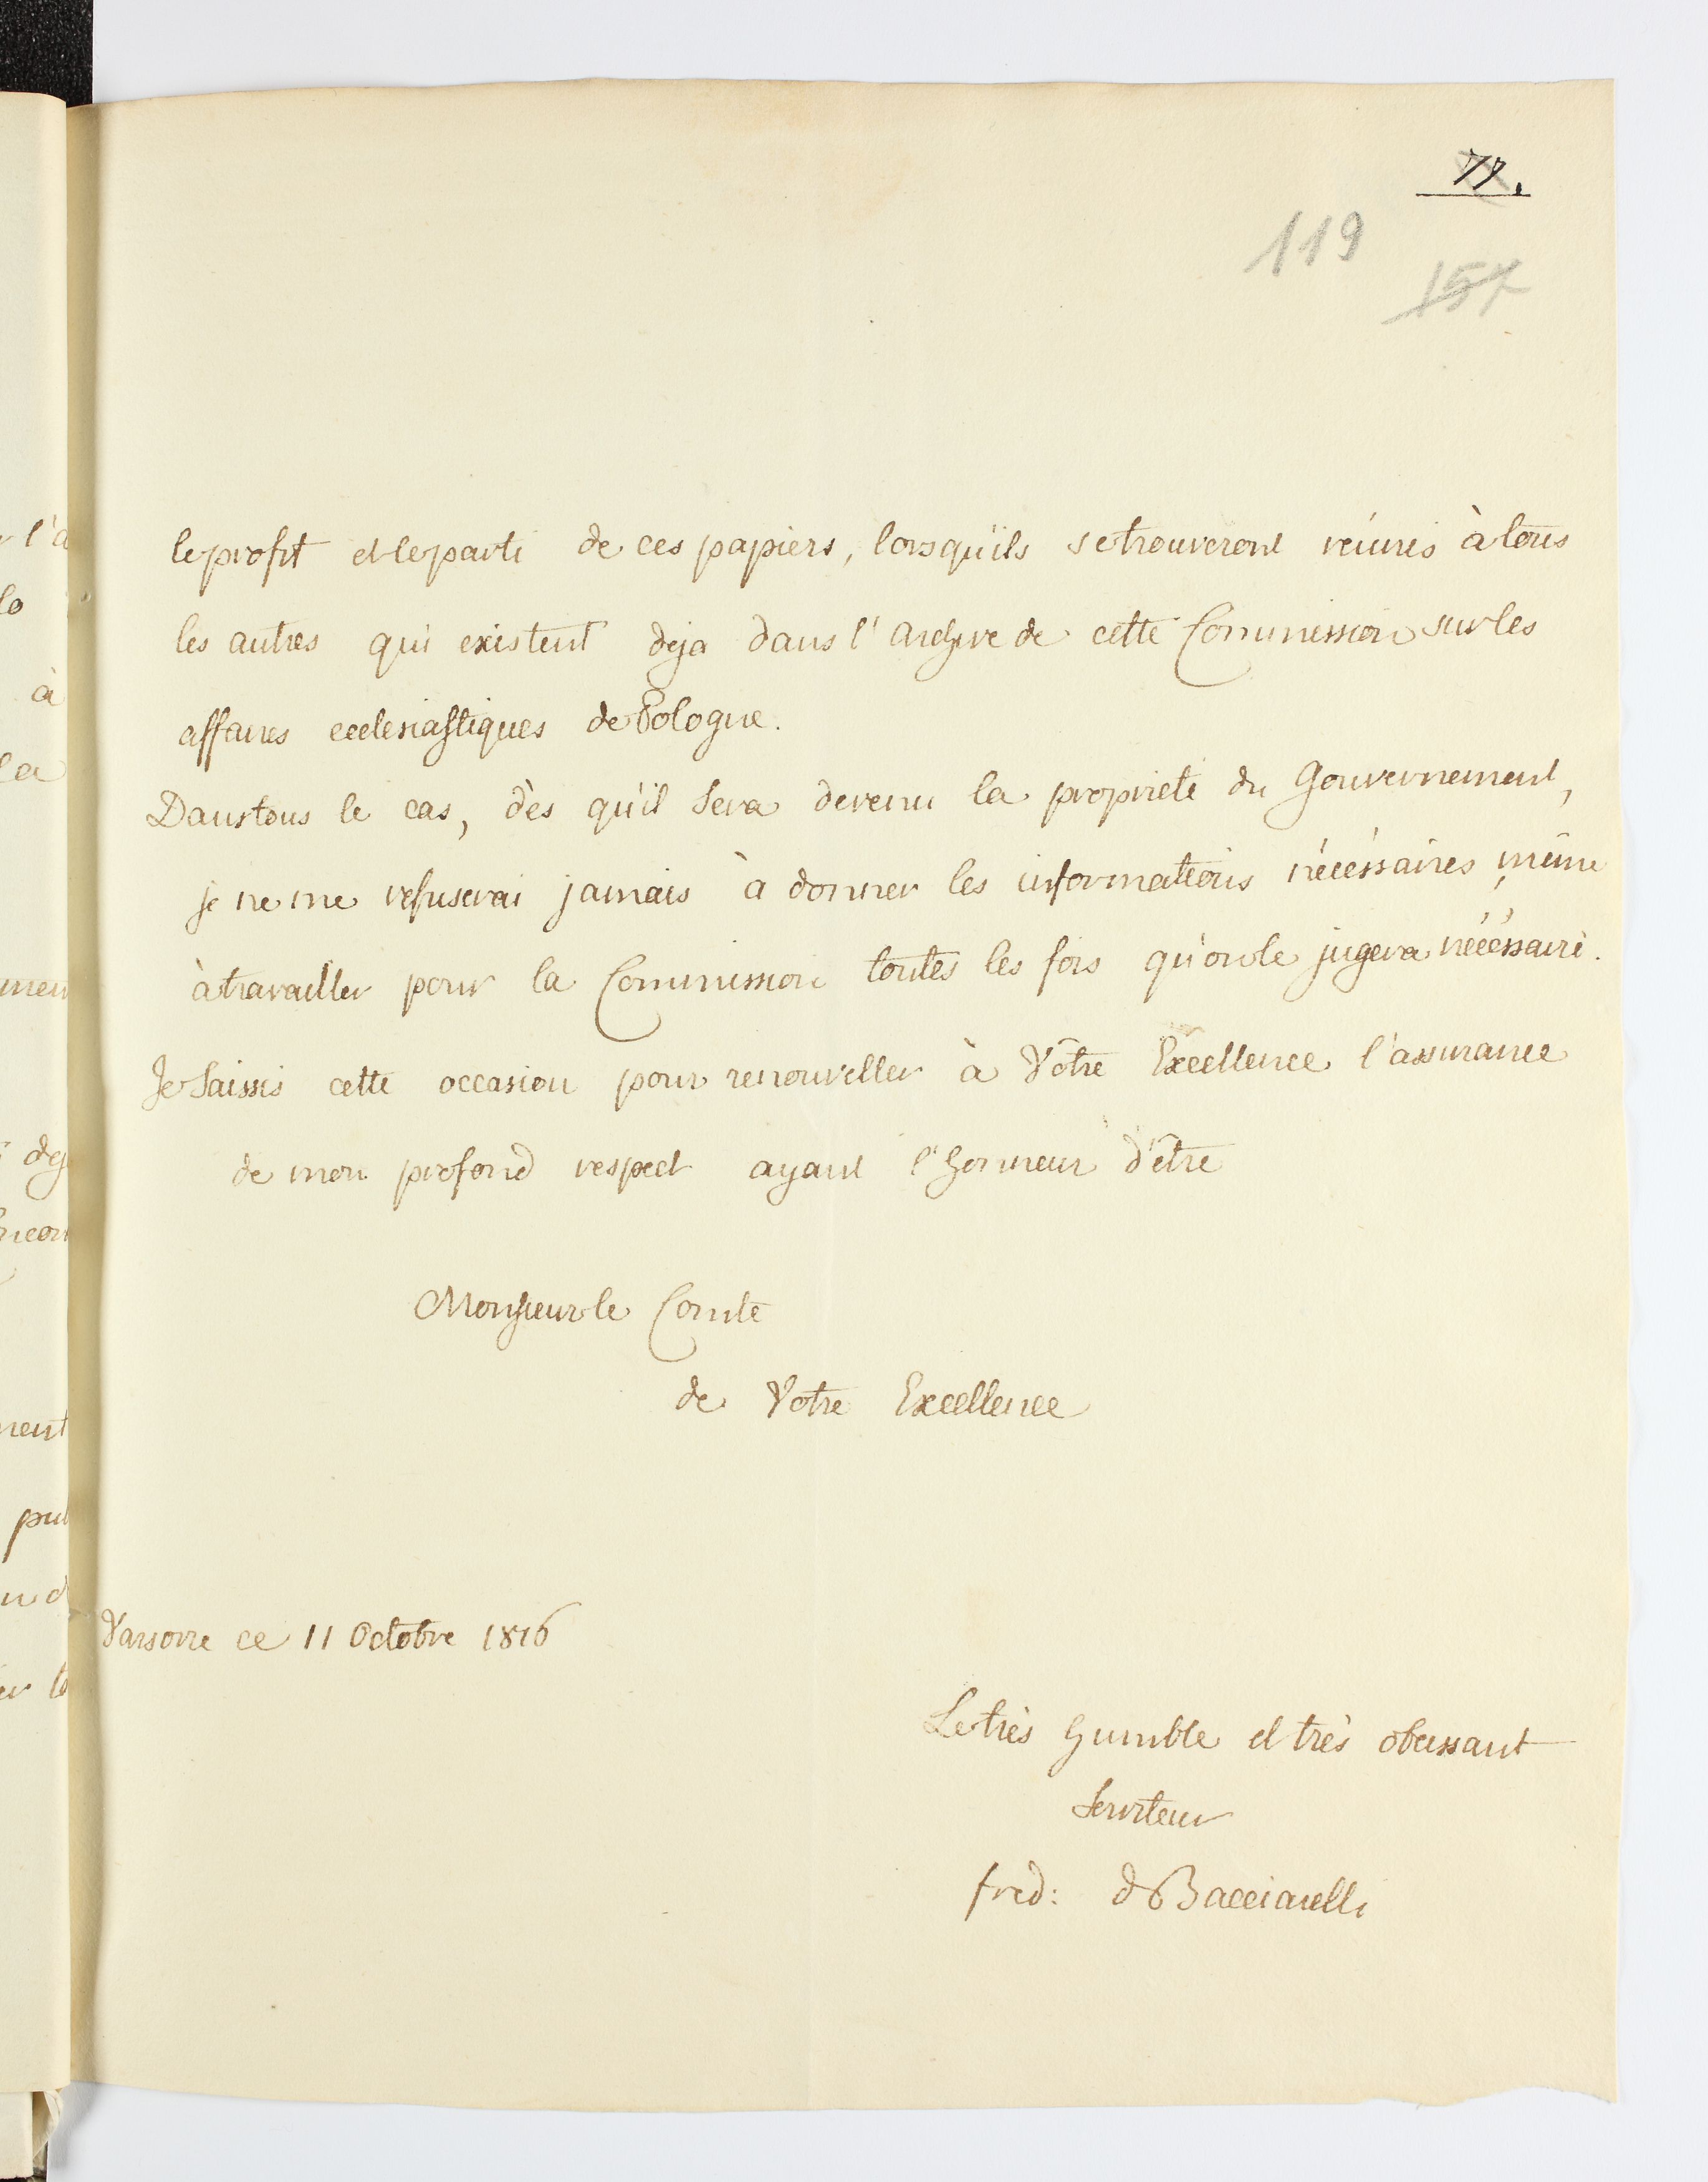 77.
119
157
le profit et le parti de ces papiers, lorsqu'ils se trouveront réunis à tous
les autres qui existent deja dans l'archive de cette Commission sur les
affaires ecclesiastiques de Pologne.
Dans tous le cas, dès qu'il sera devenu la proprieté du Gouvernement,
je ne me refuserai jamais à donner les informations nécéssaires, même
à travailler pour la Commission toutes les fois qu'on le jugera nécéssaire.
Je saissis cette occasion pour renouveller à Vôtre Excellence l'assurance
de mon profond respect ayant l'honneur d'être
Monsieur le Comte
de Votre Excellence
Varsovie ce 11 Octobre 1816
Le très humble et très obeissant
Serviteur
fred: d Bacciarelli